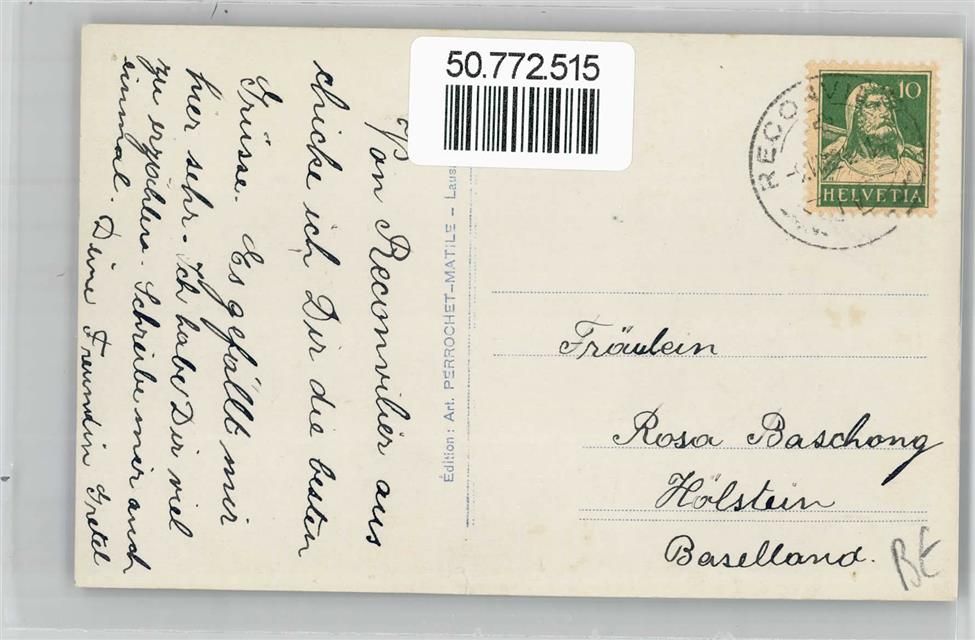 50.772.515
Von Reconvilier aus
schicke ich Dir die besten
Grüsse. Es gefällt mir
hier sehr. Ich habe Dir viel
zu erzählen. Schreibe mir auch
einmal. Deine Freundin Gretel
Édition: Art. PERROCHET-MATILE – Laus
RECONV
10
HELVETIA
Fräulein
Rosa Baschong
Hölstein
Baselland.
BE